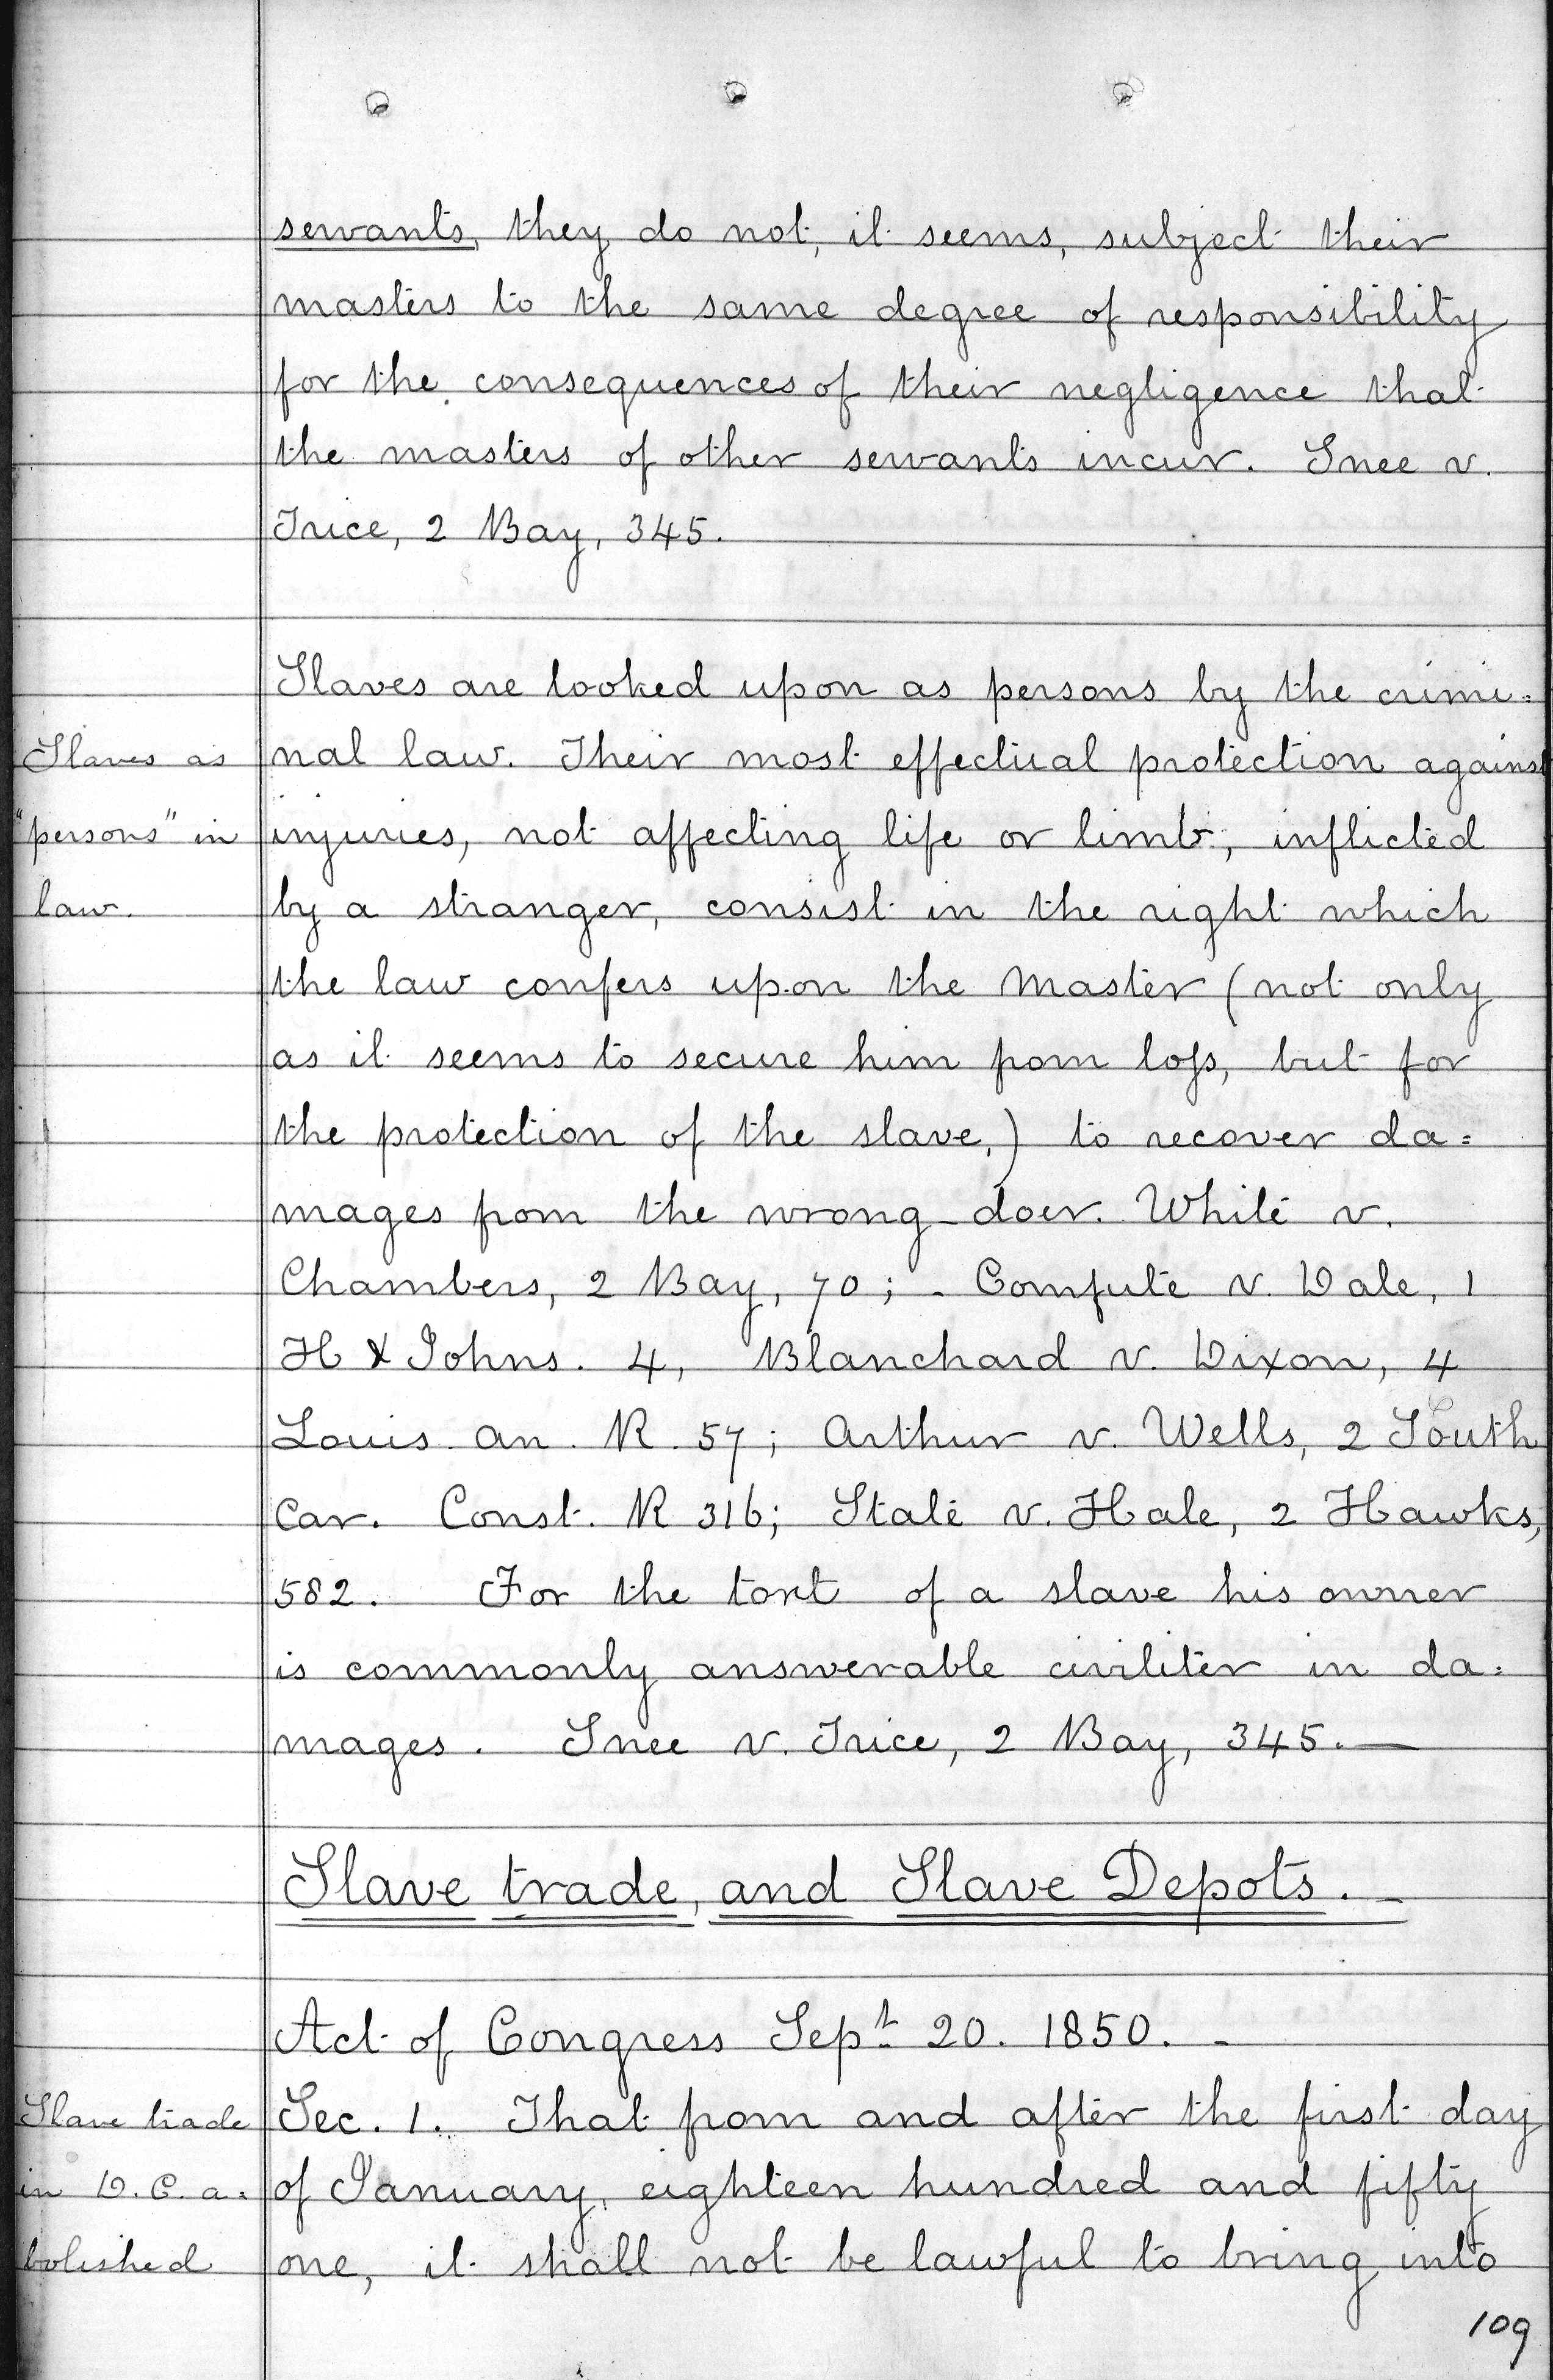 servants, they do not, it seems, subject their
masters to the same degree of responsibility
for the consequences of their negligence that
the masters of other servants incur. Snee v.
Trice, 2 Bay, 345.
Slaves are looked upon as persons by the crimi=
Slaves as nal law. Their most effectual protection against
"persons" in injuries, not affecting life or limb, inflicted
law. by a stranger, consist in the right which
the law confers upon the Master (not only
as it seems to secure him from loss, but for
the protection of the slave,) to recover da=
mages from the wrong-doer. White v.
Chambers, 2 Bay, 70; - Compute v. Dale, 1
H & Johns. 4, Blanchard v. Dixon, 4
Louis. An. R. 57; Arthur v. Wells, 2 South
Car. Const. R 316; State v. Hale, 2 Hawks,
582. For the tort of a slave his owner
is commonly answerable civiliter in da=
mages. Snee v. Trice, 2 Bay, 345. —
Slave trade, and Slave Depots. -
Act of Congress Sept 20. 1850. -
Slave trade Sec. 1. That from and after the first day
in D. C. a= of January, eighteen hundred and fifty
bolished one, it shall not be lawful to bring into
109